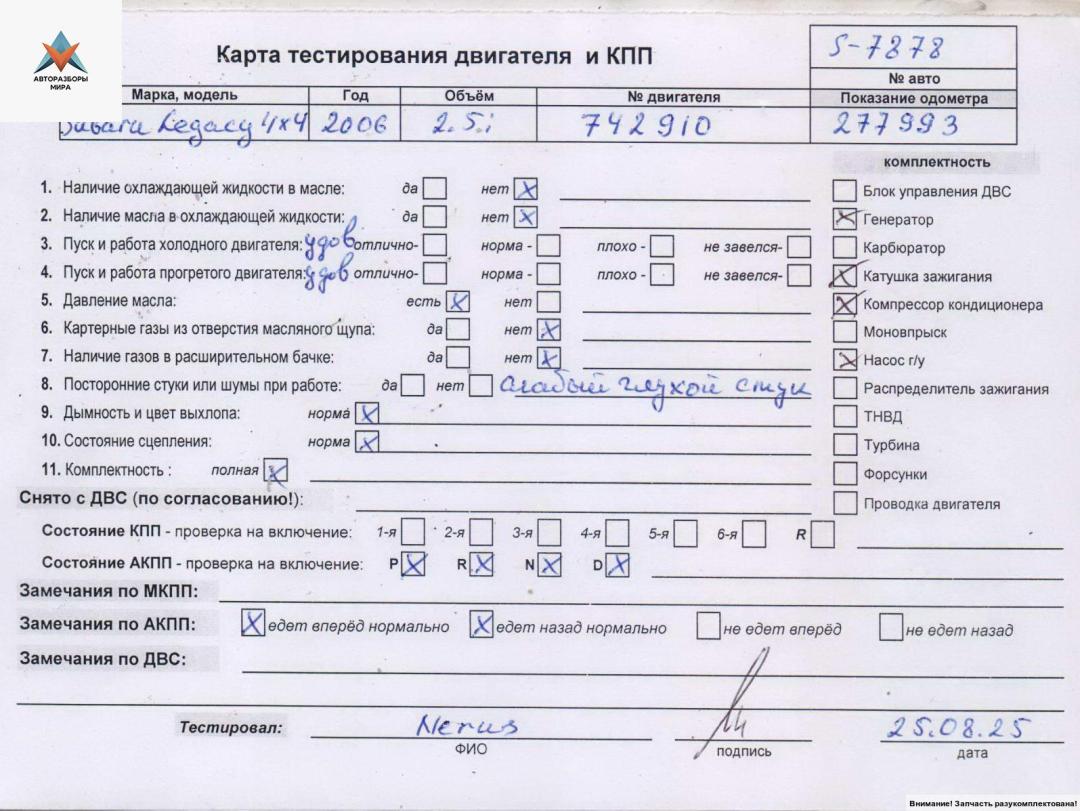 АВТОРАЗБОРЫ
МИРА
Карта тестирования двигателя и КПП
S-7878
№ авто
Марка, модель Год Объём № двигателя Показание одометра
Subaru Legacy 4x4 2006 2.5i 742910 277993
комплектность
1. Наличие охлаждающей жидкости в масле: да нет X
Блок управления ДВС
2. Наличие масла в охлаждающей жидкости: да нет X
X Генератор
3. Пуск и работа холодного двигателя: удов отлично- норма - плохо - не завелся-
Карбюратор
4. Пуск и работа прогретого двигателя: удов отлично- норма - плохо - не завелся-
X Катушка зажигания
5. Давление масла: есть X нет
X Компрессор кондиционера
6. Картерные газы из отверстия масляного щупа: да нет X
Моновпрыск
7. Наличие газов в расширительном бачке: да нет X
X Насос г/у
8. Посторонние стуки или шумы при работе: да нет слабый глухой стук
Распределитель зажигания
9. Дымность и цвет выхлопа: норма X
ТНВД
10. Состояние сцепления: норма X
Турбина
11. Комплектность : полная X
Форсунки
Снято с ДВС (по согласованию!):
Проводка двигателя
Состояние КПП - проверка на включение: 1-я 2-я 3-я 4-я 5-я 6-я R
Состояние АКПП - проверка на включение: P X R X N X D X
Замечания по МКПП:
Замечания по АКПП: X едет вперёд нормально X едет назад нормально не едет вперёд не едет назад
Замечания по ДВС:
Тестировал: Nerus 25.08.25
ФИО подпись дата
Внимание! Запчасть разукомплектована!